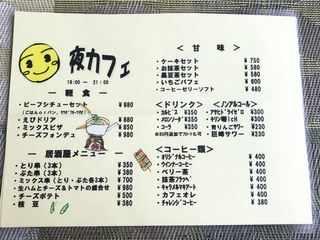 夜カフェ
18:00 ～ 21:00
― 軽 食 ―
・ビーフシチューセット ¥980
(ごはんorパン、サラダ・スープ付き)
・えびドリア ¥880
・ミックスピザ ¥850
・チーズフォンデュ ¥980
― 居酒屋メニュー ―
・とり串 (3本) ¥350
・ぶた串 (3本) ¥380
・ミックス串 (とり・ぶた各3本) ¥700
・生ハムとチーズ＆トマトの盛合せ ¥980
・チーズポテト ¥500
・枝 豆 ¥380
＜ 甘 味 ＞
・ケーキセット ¥750
・お抹茶セット ¥580
・黒豆茶セット ¥680
・いちごパフェ ¥600
・コーヒーゼリーソフト ¥480
＜ドリンク＞
カルピス ¥350
メロンソーダ ¥350
コーラ ¥350
＜ノンアルコール＞
アサヒドライゼロ ¥350
キリン零ICHI ¥350
青りんごサワー ¥380
巨峰サワー ¥380
＜コーヒー類＞
・オリジナルコーヒー ¥400
・ウインナーコーヒー ¥400
・ベリー茶 ¥400
・抹茶フラッペ ¥400
・キャラメルマキアート ¥400
・カフェオレ ¥400
・チャレンジコーヒー ¥380